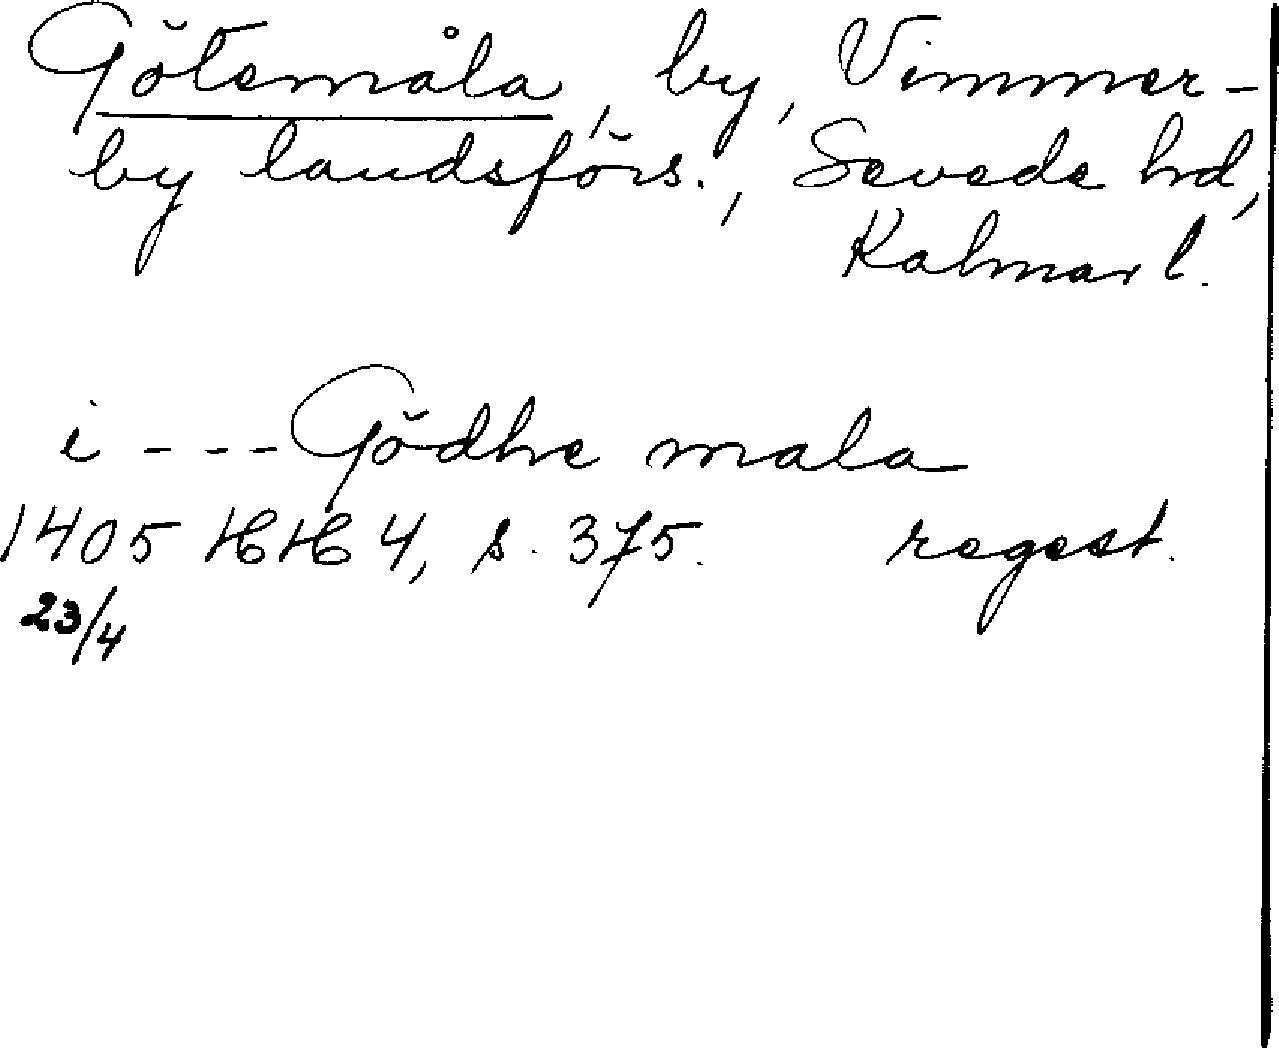 Götemåla, by, Vimmer-
by landsförs., Sevede hd,
Kalmar l.
i --- Gödhe mala
1405 HH 4, s. 375. regest.
23/4